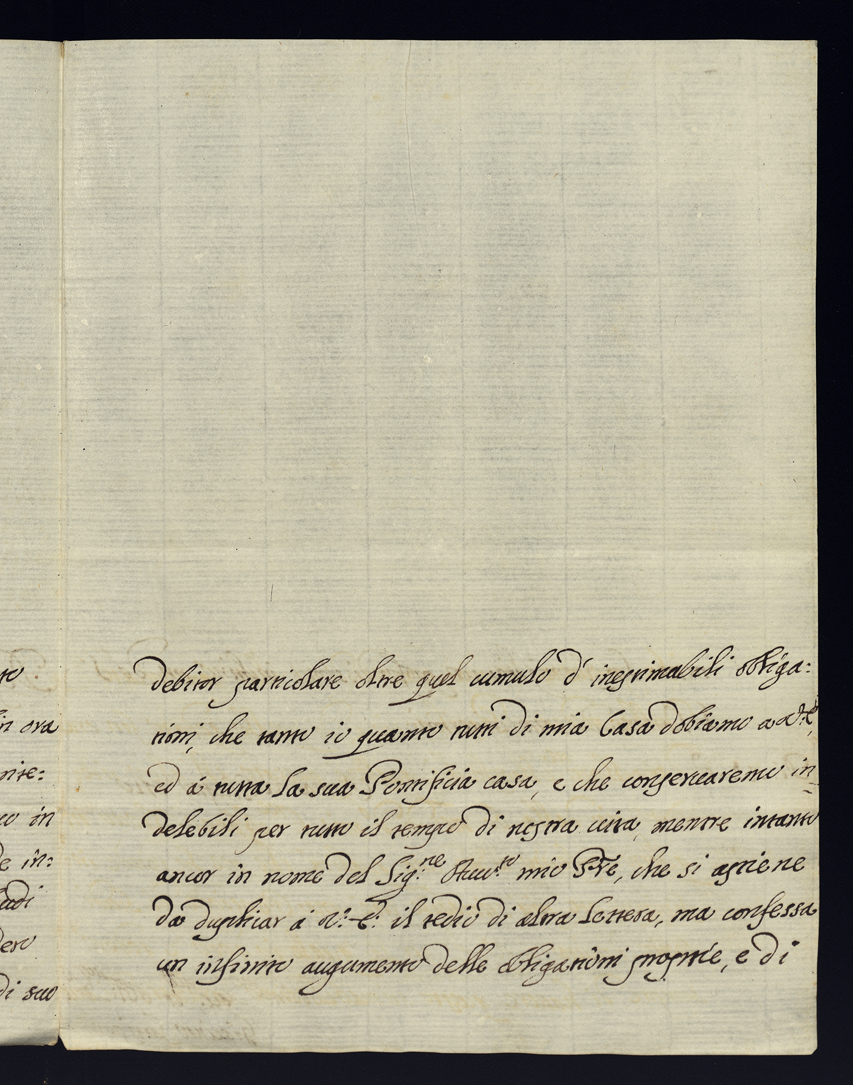 to
in ora
nite:
co in
e in:
tadi
dero
di suo
debitor particolare oltre quel cumulo d' inestimabili obliga:
tioni, che tanto io quanto tutti di mia Casa dobiamo a V. E.
ed á tutta la sua Pontificia casa, e che conservaremo in
delebili per tutto il tempo di nostra vita, mentre intanto
ancor in nome del Sig.ne mio P̃re, che si astiene
da duplicar á V. E. il tedio di altra lettera, ma confessa
un infinito augumento delle obligationi proprie, e di